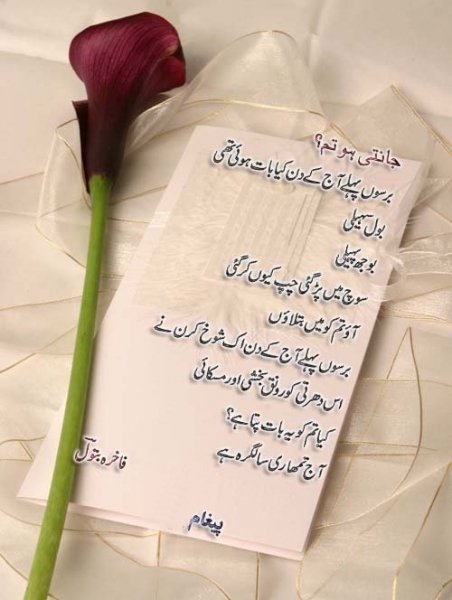 جانتی ہو تم؟
برسوں پہلے آج کے دن کیا بات ہوئی تھی
بول سہیلی
بوجھ پہیلی
سوچ میں پڑ گئی چپ کیوں کر گئی
آؤ تم کو میں بتلاؤں
برسوں پہلے آج کے دن اک شوخ کرن نے
اس دھرتی کو رونق بخشی اور مسکائی
کیا تم کو یہ بات پتا ہے؟
آج تمھاری سالگرہ ہے
فاخرہ بتول
پیغام